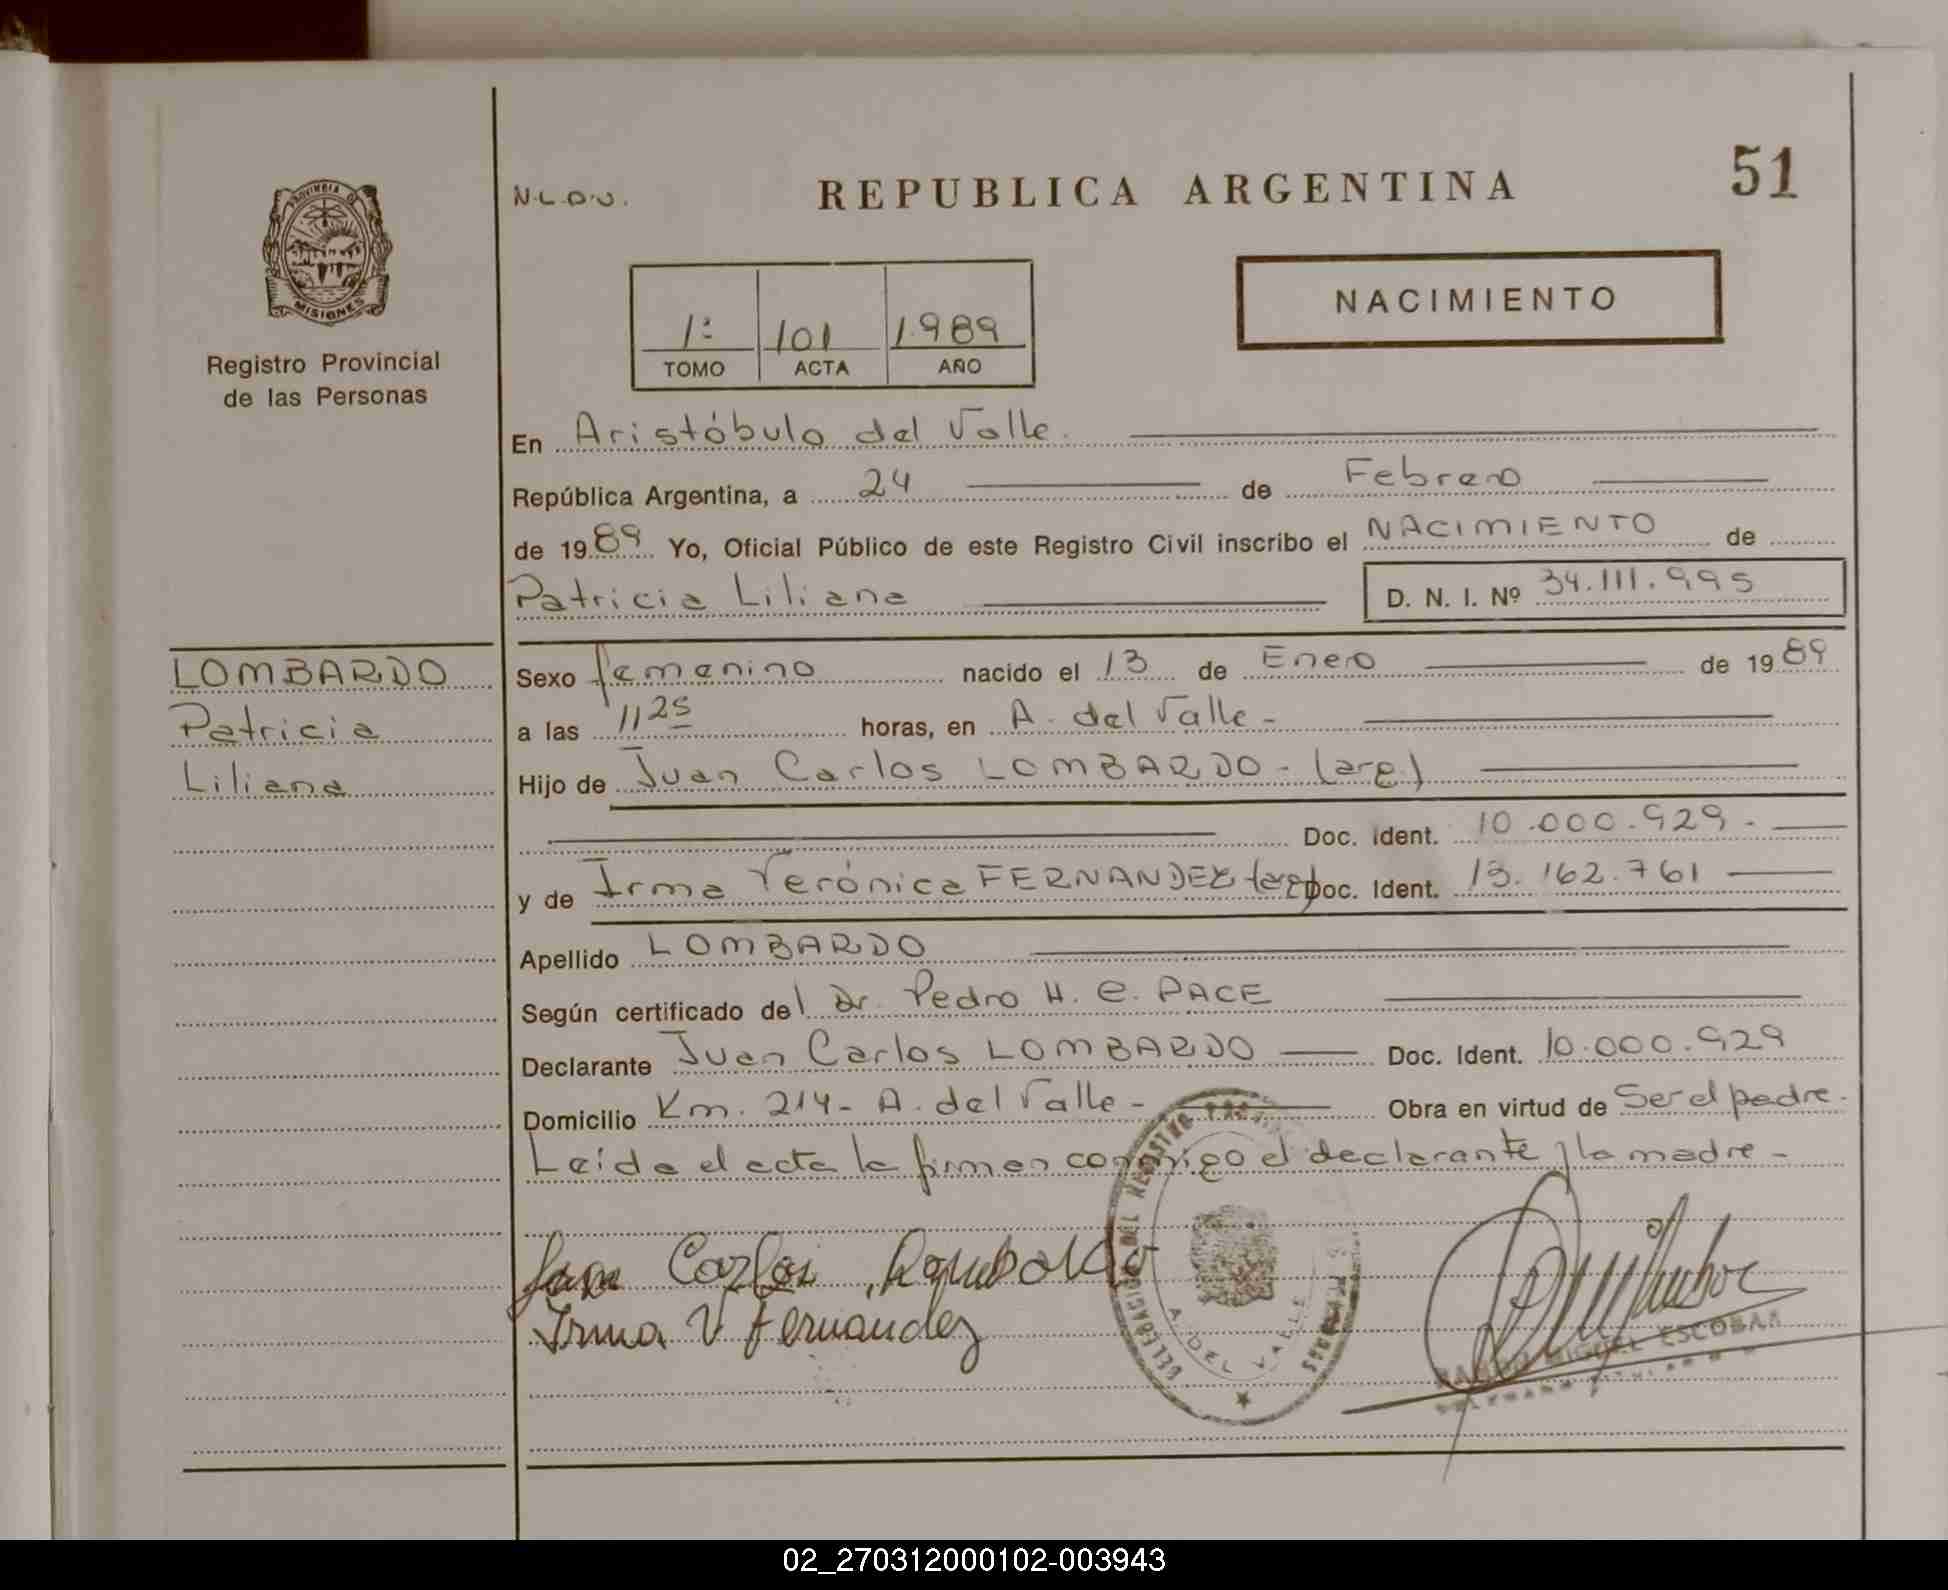 N.L.D.U.
REPUBLICA ARGENTINA
51
PROVINCIA DE
MISIONES
Registro Provincial
de las Personas
NACIMIENTO
1º 101 1989
TOMO ACTA AÑO
En Aristóbulo del Valle.
República Argentina, a 24 de Febrero
de 1989 Yo, Oficial Público de este Registro Civil inscribo el NACIMIENTO de
Patricia Liliana D. N. I. Nº 34.111.995
LOMBARDO
Patricia
Liliana
Sexo femenino nacido el 13 de Enero de 1989
a las 11 25 horas, en A. del Valle -
Hijo de Juan Carlos LOMBARDO - (arg.)
Doc. Ident. 10.000.929.-
y de Irma Verónica FERNANDEZ (arg) Doc. Ident. 13.162.761
Apellido LOMBARDO
Según certificado del Dr. Pedro H. C. PACE
Declarante Juan Carlos LOMBARDO Doc. Ident. 10.000.929
Domicilio Km. 214 - A. del Valle - Obra en virtud de Ser el padre.
Leída el acta la firman conmigo el declarante y la madre -
Juan Carlos Lombardo
Irma V Fernandez
DELEGACION DEL REGISTRO
A. DEL VALLE
MIGUEL ESCOBAR
02_270312000102-003943